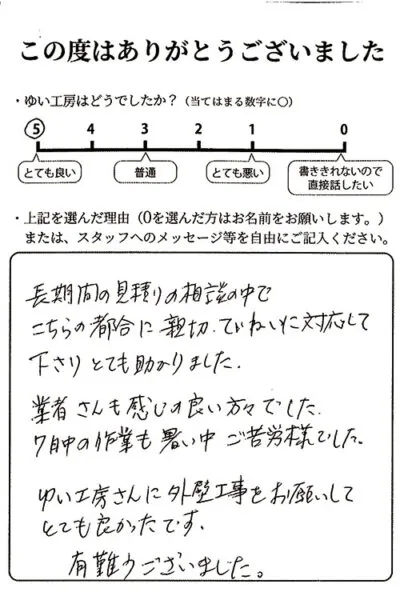 この度はありがとうございました
・ゆい工房はどうでしたか？（当てはまる数字に○）
5 4 3 2 1 0
とても良い 普通 とても悪い 書ききれないので
直接話したい
・上記を選んだ理由（0を選んだ方はお名前をお願いします。）
または、スタッフへのメッセージ等を自由にご記入ください。
長期間の見積りの相談の中で
こちらの都合に親切、ていねいに対応して
下さりとても助かりました。
業者さんも感じの良い方々でした。
7月中の作業も暑い中ご苦労様でした。
ゆい工房さんに外壁工事をお願いして
とても良かったです。
有難うございました。